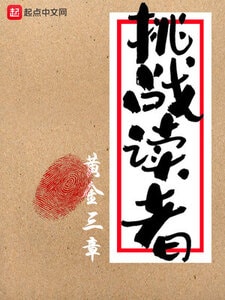 起点中文网
挑战读者
黄金三章